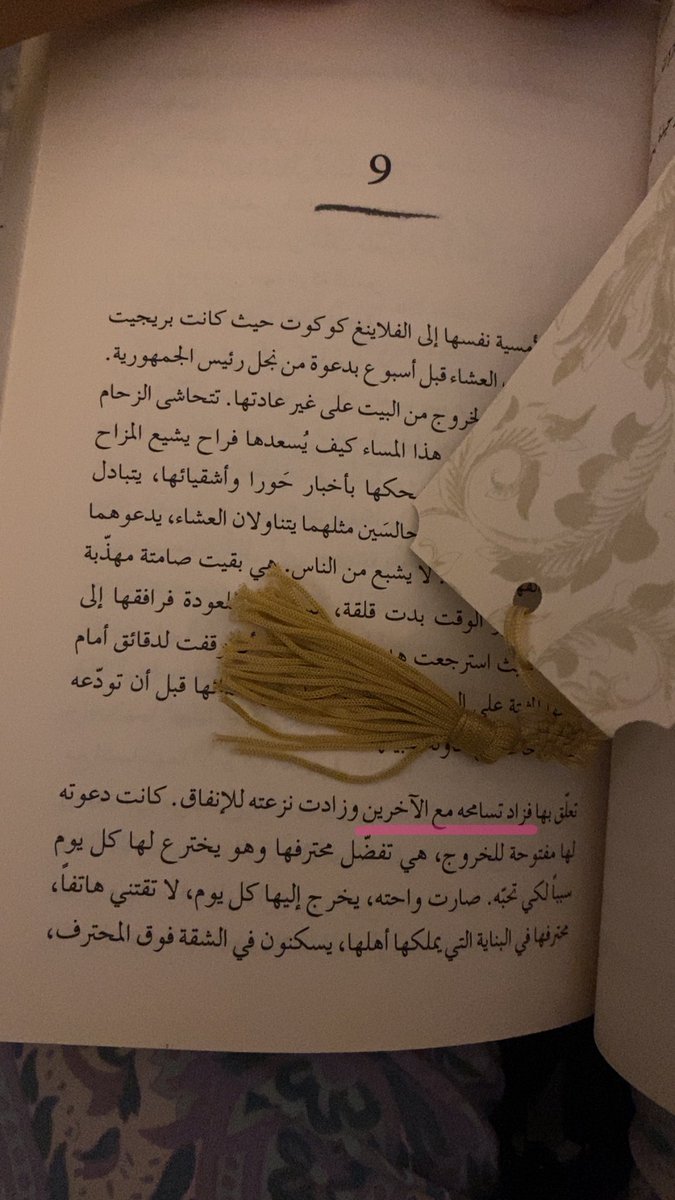 9
أمسية نفسها إلى الفلاينغ كوكوت حيث كانت بريجيت
العشاء قبل أسبوع بدعوة من نجل رئيس الجمهورية.
لخروج من البيت على غير عادتها. تتحاشى الزحام
هذا المساء كيف يُسعدها فراح يشيع المزاح
بأخبار حَورا وأشقيائها، يتبادل
مثلهما يتناولان العشاء، يدعوهما
لا يشبع من الناس. هي بقيت صامتة مهذّبة
الوقت بدت قلقة، للعودة فرافقها إلى
استرجعت لدقائق أمام
على قبل أن تودّعه
تعلّق بها فزاد تسامحه مع الآخرين وزادت نزعته للإنفاق. كانت دعوته
لها مفتوحة للخروج، هي تفضّل محترفها وهو يخترع لها كل يوم
سبباً لكي تحبّه. صارت واحته، يخرج إليها كل يوم، لا تقتني هاتفاً،
محترفها في البناية التي يملكها أهلها، يسكنون في الشقة فوق المحترف،